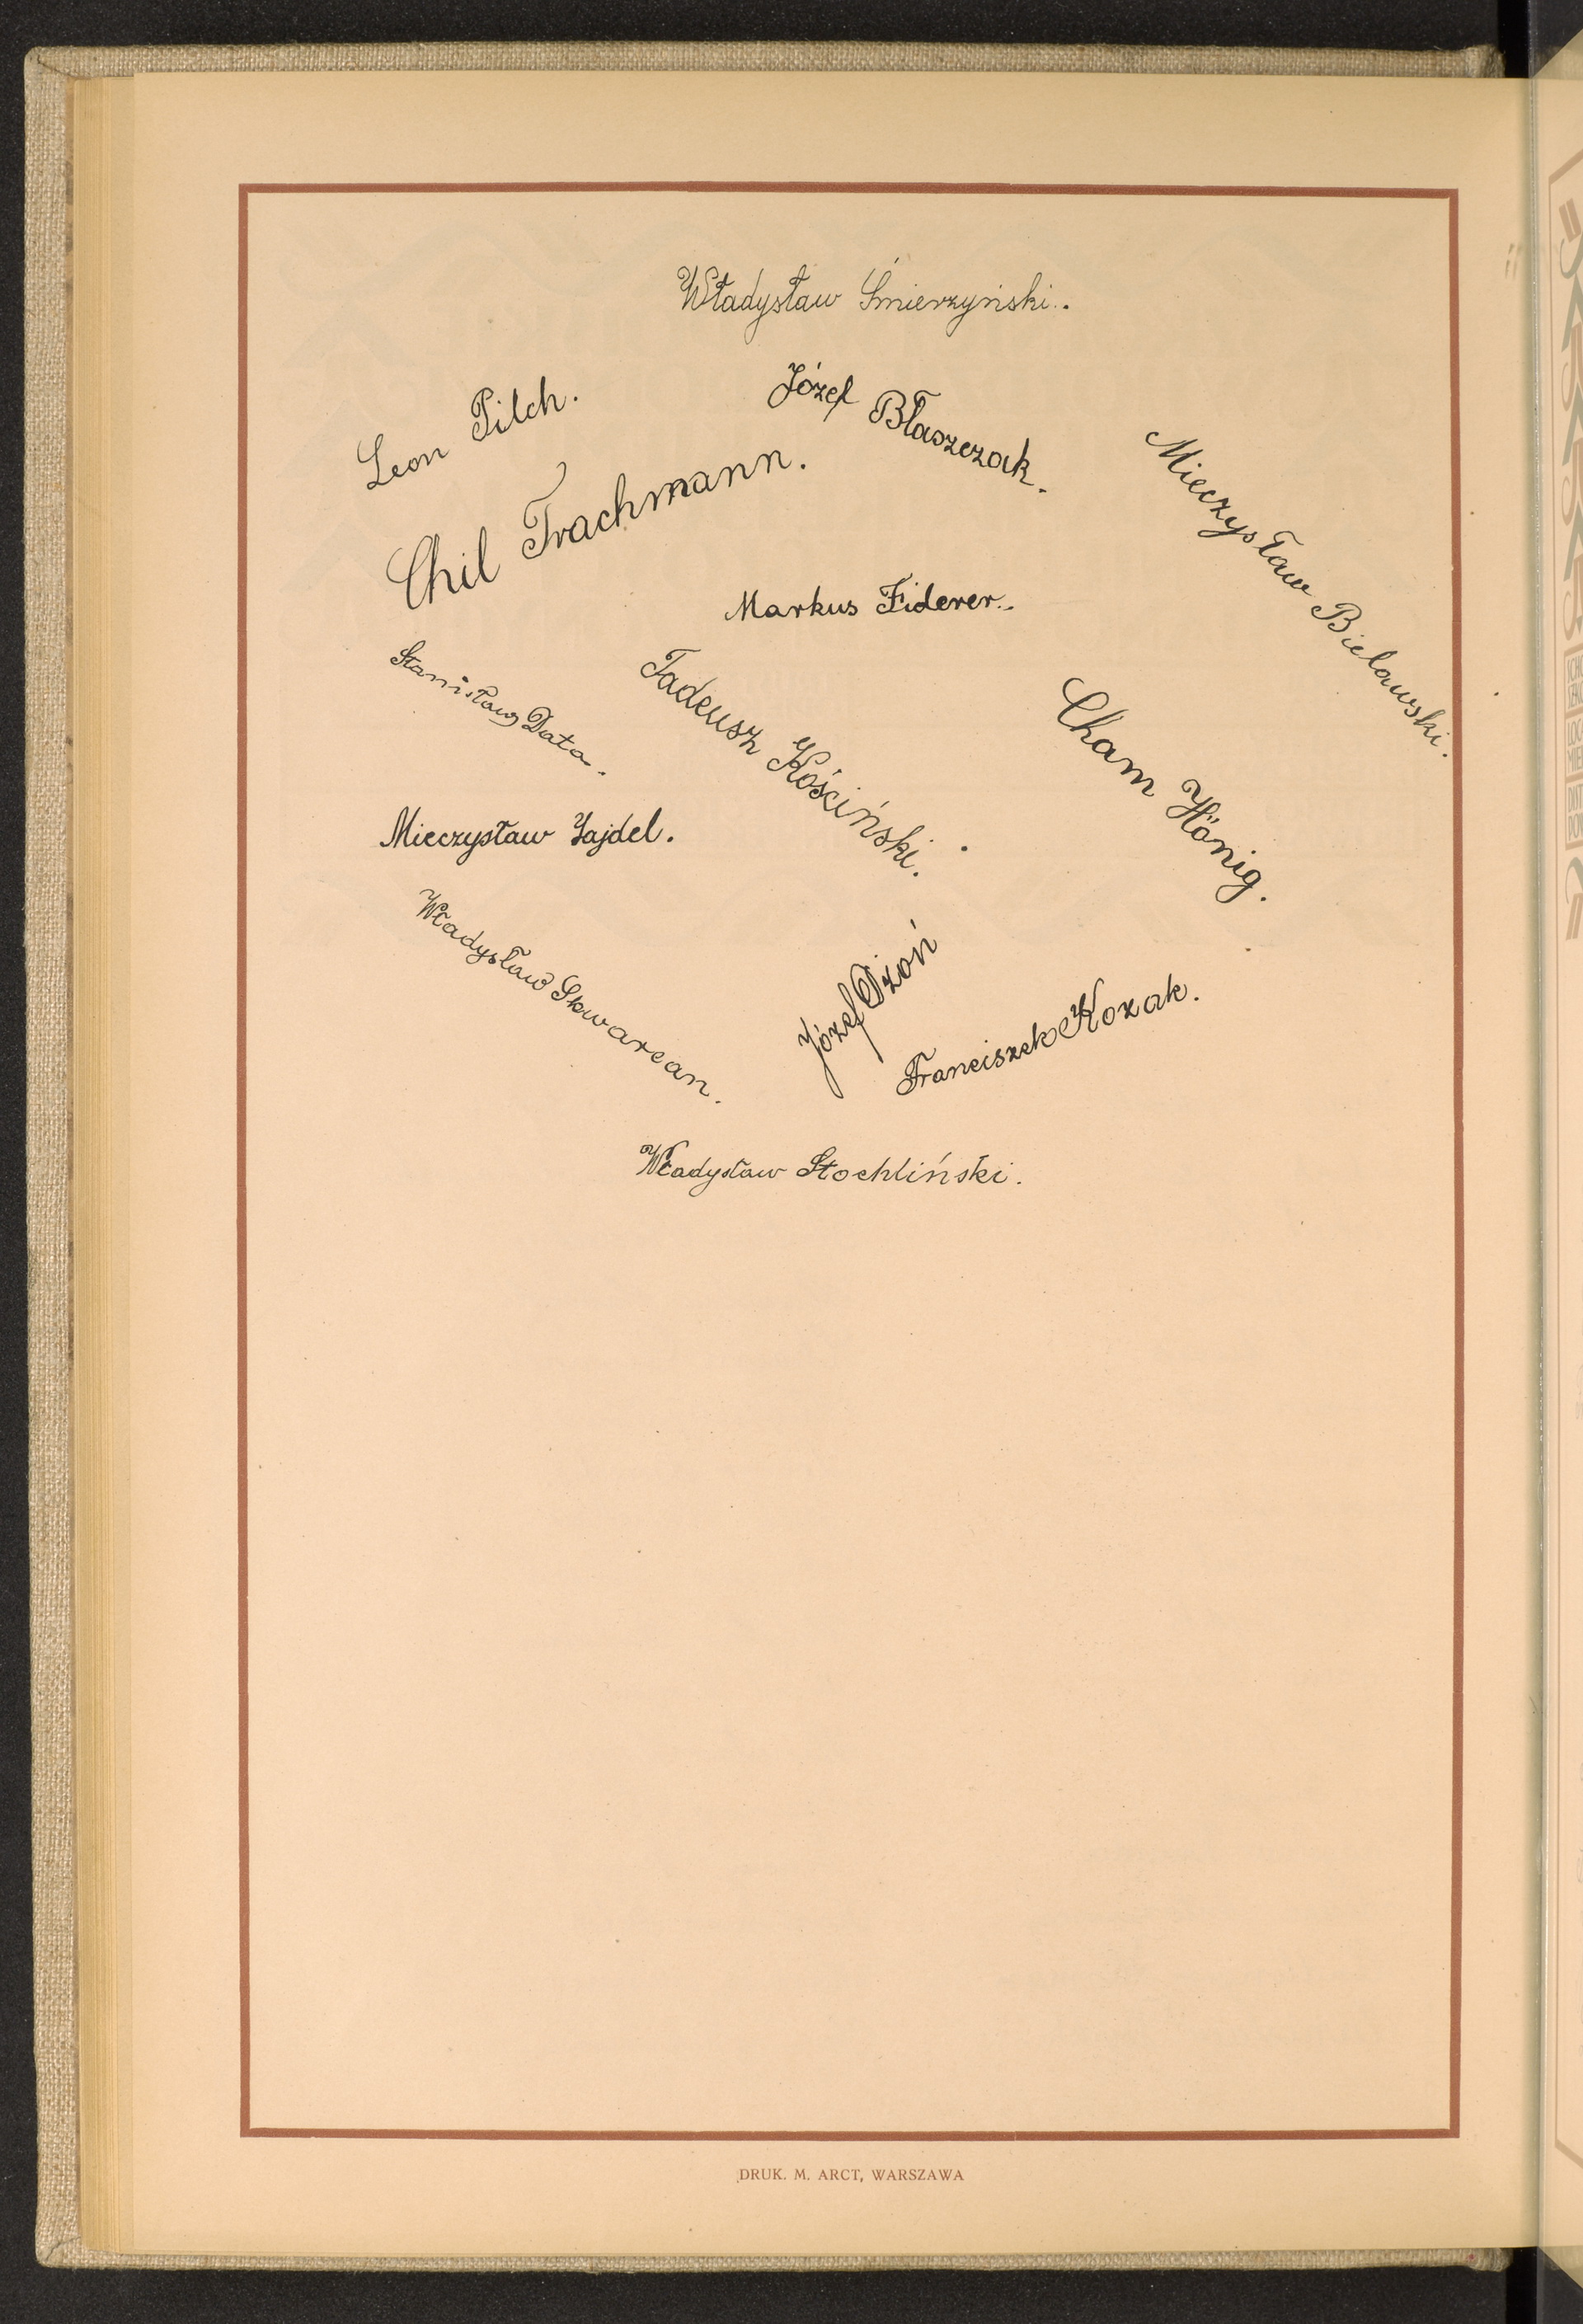 Władysław Śmierzyński.
Leon Pilch.
Józef Błaszczak.
Mieczysław Bielawski.
Chil Trachmann.
Markus Fiderer.
Stanisław Data.
Tadeusz Kościński.
Cham Hönig.
Mieczysław Jajdel.
Władysław Skwarcan.
Józef Dżoń
Franciszek Kozak.
Władysław Stochliński.
DRUK. M. ARCT, WARSZAWA